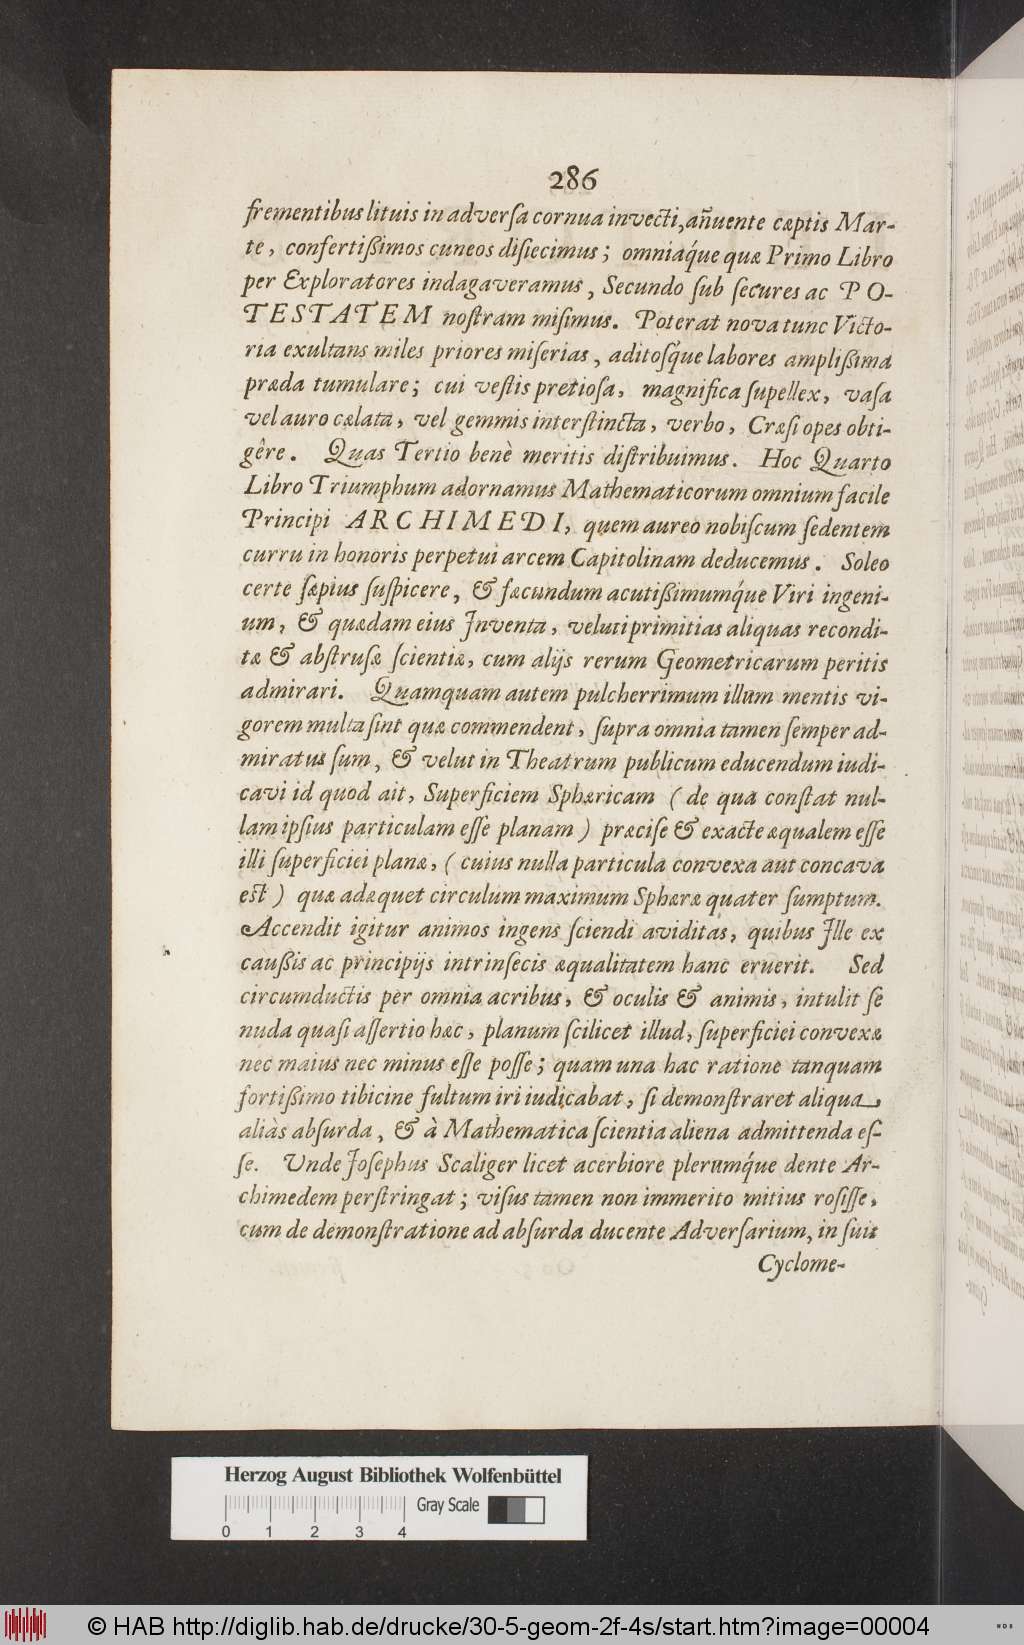 286
frementibus lituis in adverſa cornua invecti, añuente cæptis Mar-
te, confertißimos cuneos diſiecimus; omniaq́ue quæ Primo Libro
per Exploratores indagaveramus, Secundo ſub ſecures ac PO-
TESTATEM noſtram miſimus. Poterat nova tunc Victo-
ria exultans miles priores miſerias, aditoſq́ue labores ampliſſima
præda tumulare; cui veſtis pretioſa, magnifica ſupellex, vaſa
vel auro cælata, vel gemmis interſtincta, verbo, Cræſi opes obti-
gêre. Quas Tertio benè meritis diſtribuimus. Hoc Quarto
Libro Triumphum adornamus Mathematicorum omnium facile
Principi ARCHIMEDI, quem aureo nobiſcum ſedentem
curru in honoris perpetui arcem Capitolinam deducemus. Soleo
certe ſæpius ſuſpicere, & fæcundum acutißimumq́ue Viri ingeni-
um, & quædam eius Inventa, veluti primitias aliquas recondi-
tæ & abſtruſæ ſcientiæ, cum alijs rerum Geometricarum peritis
admirari. Quamquam autem pulcherrimum illum mentis vi-
gorem multa ſint quæ commendent, ſupra omnia tamen ſemper ad-
miratus ſum, & velut in Theatrum publicum educendum iudi-
cavi id quod ait, Superficiem Sphæricam (de qua conſtat nul-
lam ipſius particulam eſſe planam) præciſe & exacte æqualem eſſe
illi ſuperficiei planæ, (cuius nulla particula convexa aut concava
est) quæ adæquet circulum maximum Sphæræ quater ſumptum.
Accendit igitur animos ingens ſciendi aviditas, quibus Ille ex
cauſſis ac principijs intrinſecis æqualitatem hanc eruerit. Sed
circumductis per omnia acribus, & oculis & animis, intulit ſe
nuda quaſi aſſertio hæc, planum ſcilicet illud, ſuperficiei convexæ
nec maius nec minus eſſe poſſe; quam una hac ratione tanquam
fortißimo tibicine fultum iri iudicabat, ſi demonſtraret aliqua
aliàs abſurda, & à Mathematica ſcientia aliena admittenda eſ-
ſe. Unde Joſephus Scaliger licet acerbiore plerumq́ue dente Ar-
chimedem perſtringat; viſus tamen non immerito mitius roſiſſe,
cum de demonſtratione ad abſurda ducente Adverſarium, in ſuis
Cyclome-
Herzog August Bibliothek Wolfenbüttel
Gray Scale
0 1 2 3 4
© HAB http://diglib.hab.de/drucke/30-5-geom-2f-4s/start.htm?image=00004